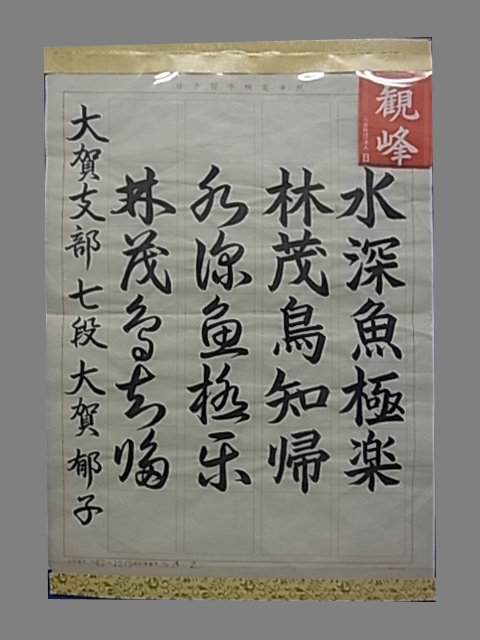 観峰
水深魚極楽
林茂鳥知帰
水深魚極楽
林茂鳥知帰
大賀支部 七段 大賀 郁子